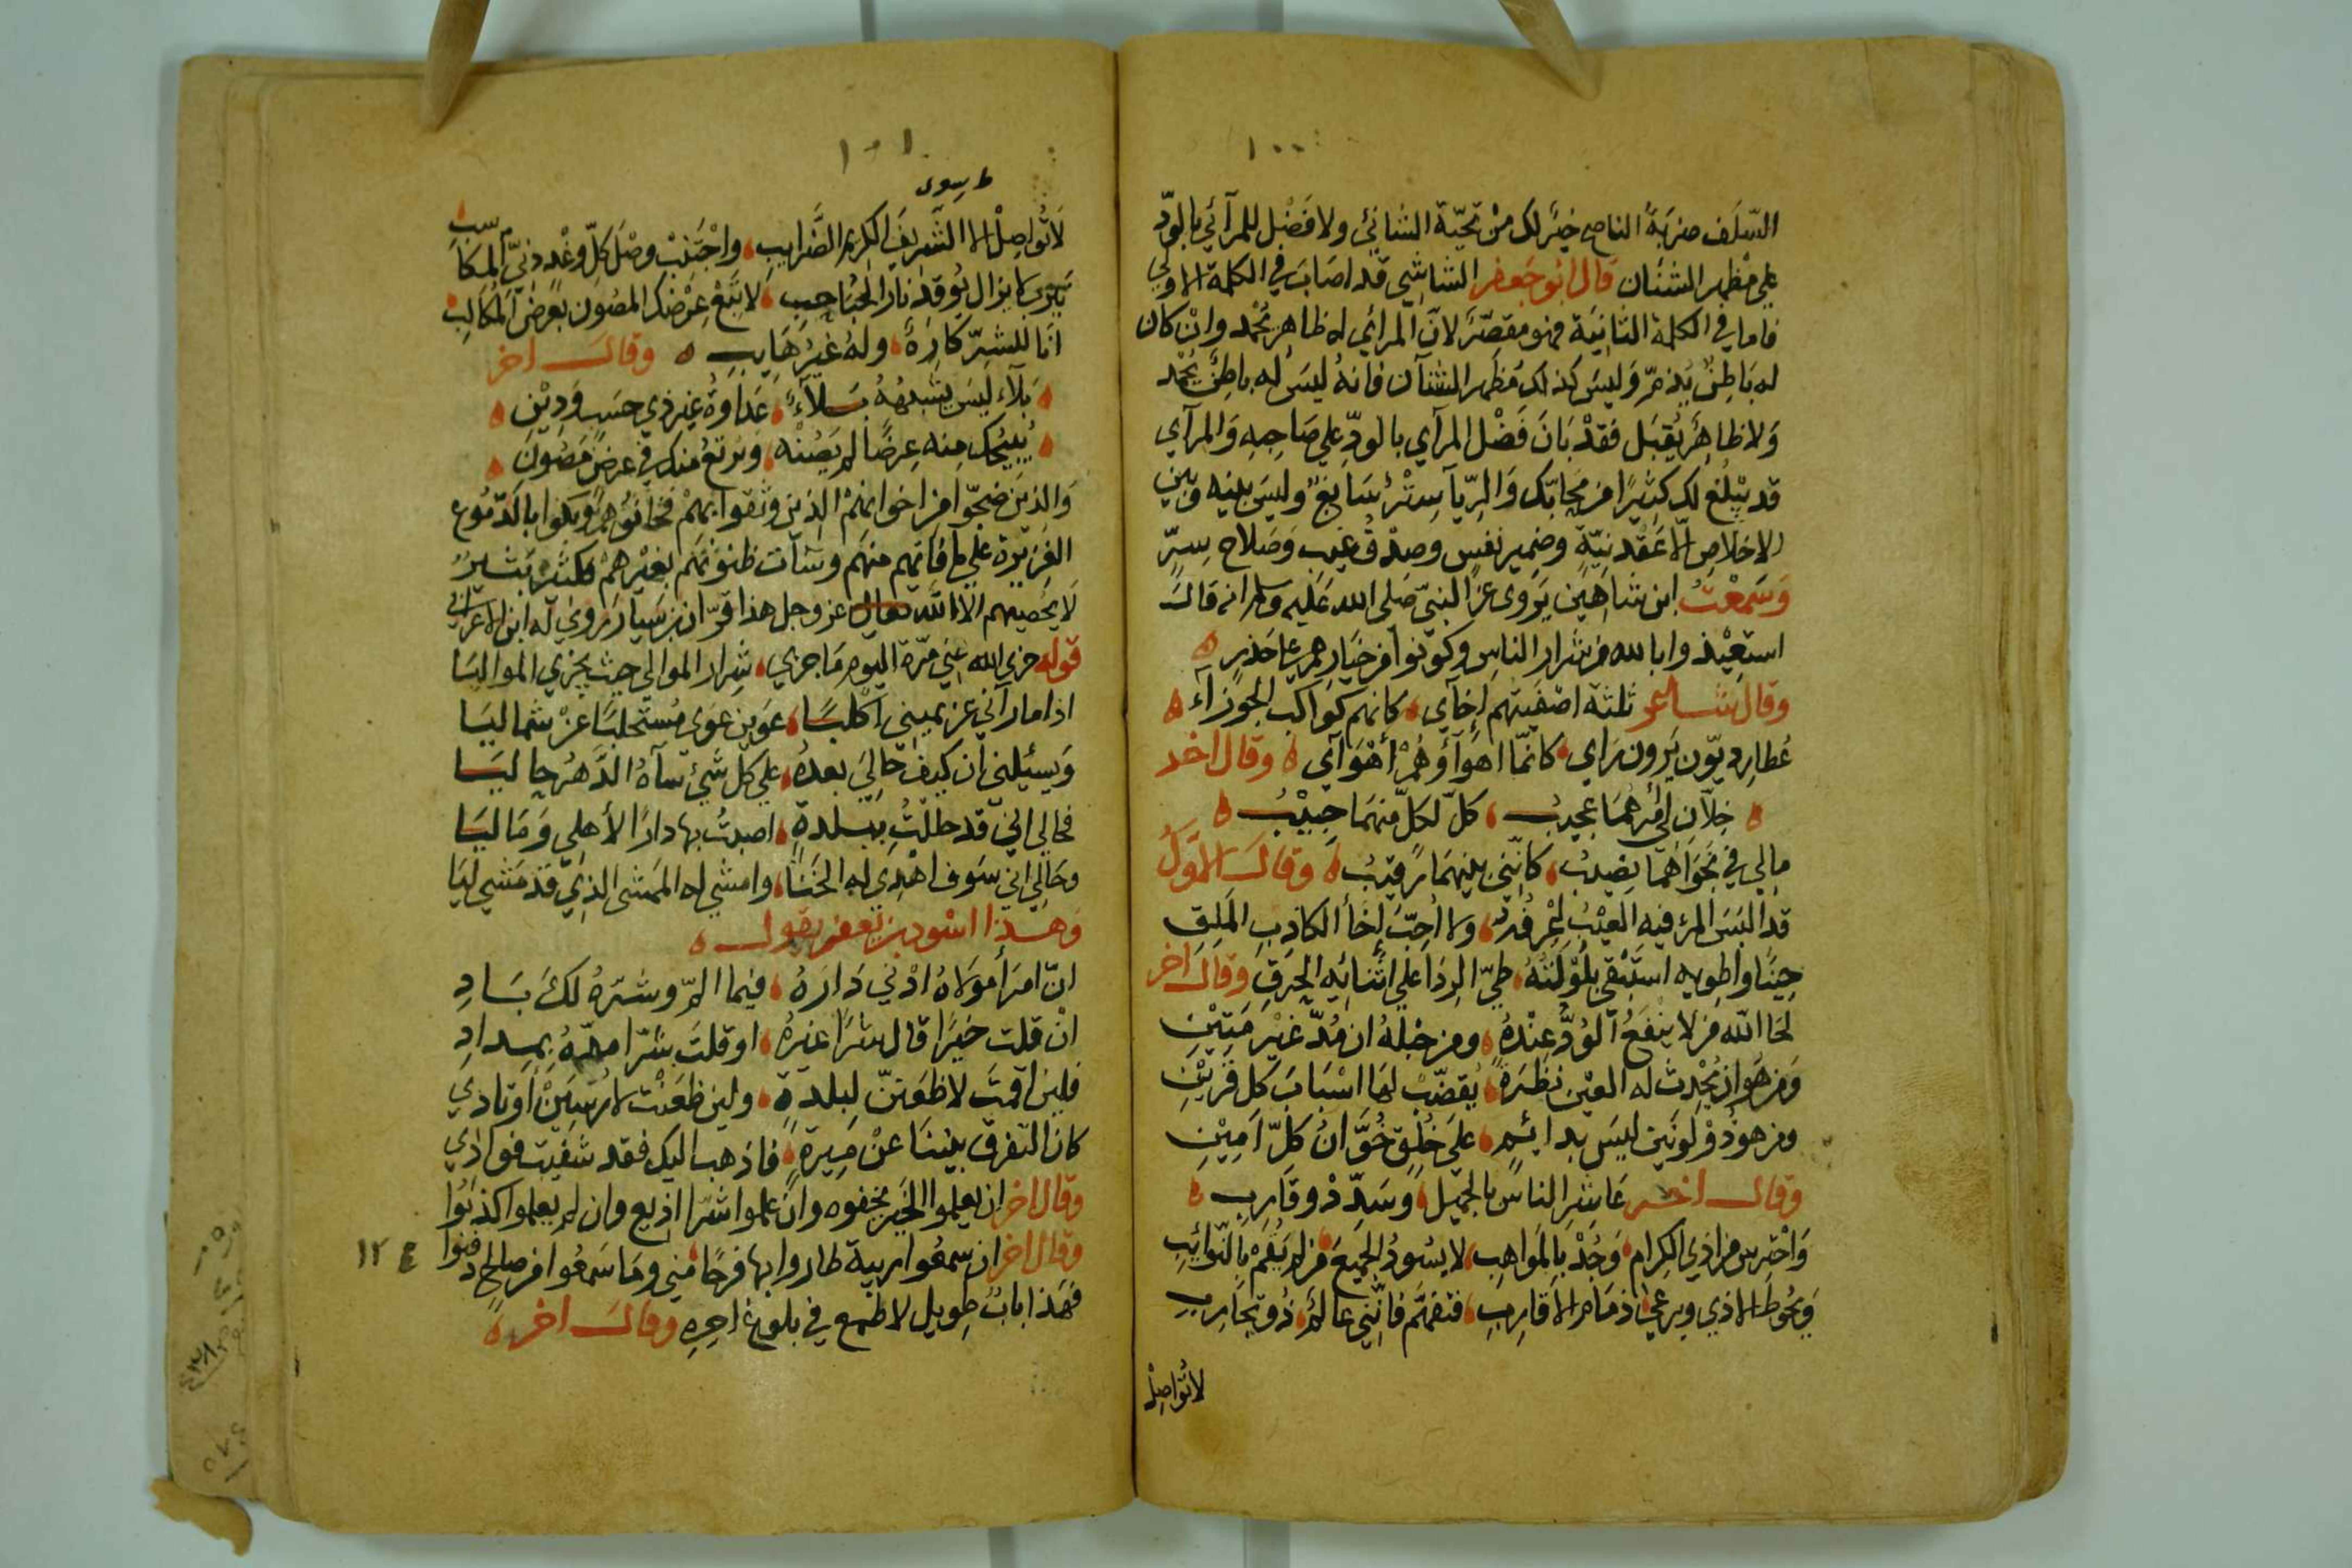 ١٠٠
السّلف ضربة الناصح خير لك من تحيّة الشانئ ولا فضل للمرآئي بالودّ
علي مظهر الشنان قال ابو جعفر الشاشي قد اصاب في الكلمة الاولي
فاما في الكلمة الثانية فهو مقصّر لانّ المرائي له ظاهر يحمد وان كان
له باطن يذمّ وليس كذلك مظهر الشنآن فانه ليس له باطن يحمد
ولا ظاهر يقبل فقد بان فضل المرآي بالودّ علي صاحبه والمرآي
قد يبلغ لك كثيرا من محابّك والريآ ستر سابغ وليس بينه وبين
الاخلاص الا عقد نيّة وضمير نفس وصدق غيب وصلاح سرّ
وسمعت ابن شاهين يروى عن النبيّ صلى الله عليه وسلم انه قال
استعيذوا بالله من شرار الناس وكونوا من خيارهم علي حذر
وقال شاعر ثلثة اصفيتهم إخآي كانهم كواكب الجوزآء
عطارديّون يرون رأي كانّما اهوآؤهم أهوآي وقال اخر
خلّان لي أمرهما عجيب كلّ لكلّ منهما حبيب
مالي في نجواهما نصيب كانّني بينهما رقيب وقال المؤمل
قد البس المرء فيه العيب اعرفه ولا أحبّ إخأ الكاذب الملق
حينا واطويه استبقي بلولته طيّ الردا علي اثنائيه الخرق وقال اخر
لحا الله من لا ينفع الودّ عنده ومن حبله ان مدّ غير متين
ومن هو ان يحدث له العين نظرة يقضّب لها اسباب كل قرين
ومن هو ذو لونين ليس بدائم علي خلق خوّان كلّ امين
وقال اخر عاشر الناس بالجميل وسدّد وقارب
واحترس من اذي الكرام وجد بالمواهب لا يسود الجميع من لم يقم بالنوائب
ويحوط الاذي ويرعي ذمام الاقارب فتفهّم فانّني عالم ذو تجارب
لا تواصل
١٠١
ط سوى
لا تواصل الا الشريف الكريم الضرايب واجتنب وصل كلّ وغد دنيّ المكاسب
نيرب لا يزال يوقد نار الحباحب لا تبع عرضك المصون بعرض المكالب
انا للشرّ كاره وله غير هايب وقال اخر
بلآء ليس يشبهه بلآء عداوة غير ذي حسب ودين
يبيحك منه عرضا لم يصنه ويرتع منك في عرض مصون
والذين ضجّوا من اخوانهم الذين وثقوا بهم فخانوهم وبكوا بالدموع
الغزيرة علي ما فاتهم منهم وسآت ظنونهم بغيرهم فكثير بشير
لا يحصيهم الا الله تعالى عز وجل هذا قرّان بن سيار يروي له ابن الاعرابي
قوله جزي الله عني مرّة اليوم ما جزي شرار الموالي حيث يجزي المواليا
اذا ما رآني عن يميني اكلبا عوين عوى مستحلبا عن شماليا
ويسئلني ان كيف حالي بعده علي كل شئ سآه الدهر حاليا
فحالي انّي قد حللت ببلدة اصبت بها دارا لأهلي وماليا
وحالي انّي سوف اهدي له الخنا وامشي له الممشى الذي قد مشي ليا
وهذا اسود بن يعفر يقول
انّ امرأ مولاه ادني داره فيما المّ وشرّه لك باد
ان قلت خيرا قال شرا غيره او قلت شرّا مدّه بمداد
فلين اقمت لا ظعنن لبلدة ولين ظعنت لارسين اوتادي
كان التفرق بيننا عن ميرة فاذهب اليك فقد شفيت فوادي
وقال اخر ان يعلموا الخير يخفوه وان علموا شرا اذيع وان لم يعلموا كذبوا
وقال اخر ان سمعوا ريبة طاروا بها فرحا مني وما سمعوا من صالح دفنوا
فهذا باب طويل لا طمع في بلوغ اخره وقال اخر
١٢٤